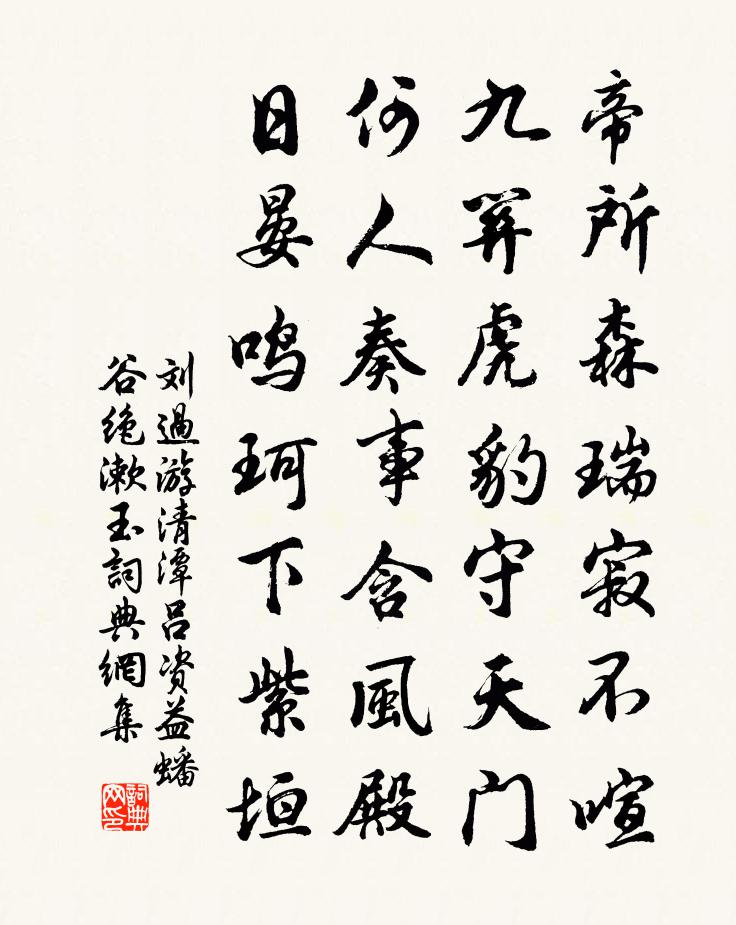 帝所森瑞寂不喧
九関虎豹守天门
何人奏事含風殿
日晏鸣珂下紫垣
刘過游清潭吕资益蟠
谷绝漱玉詞典網集
詞典网印